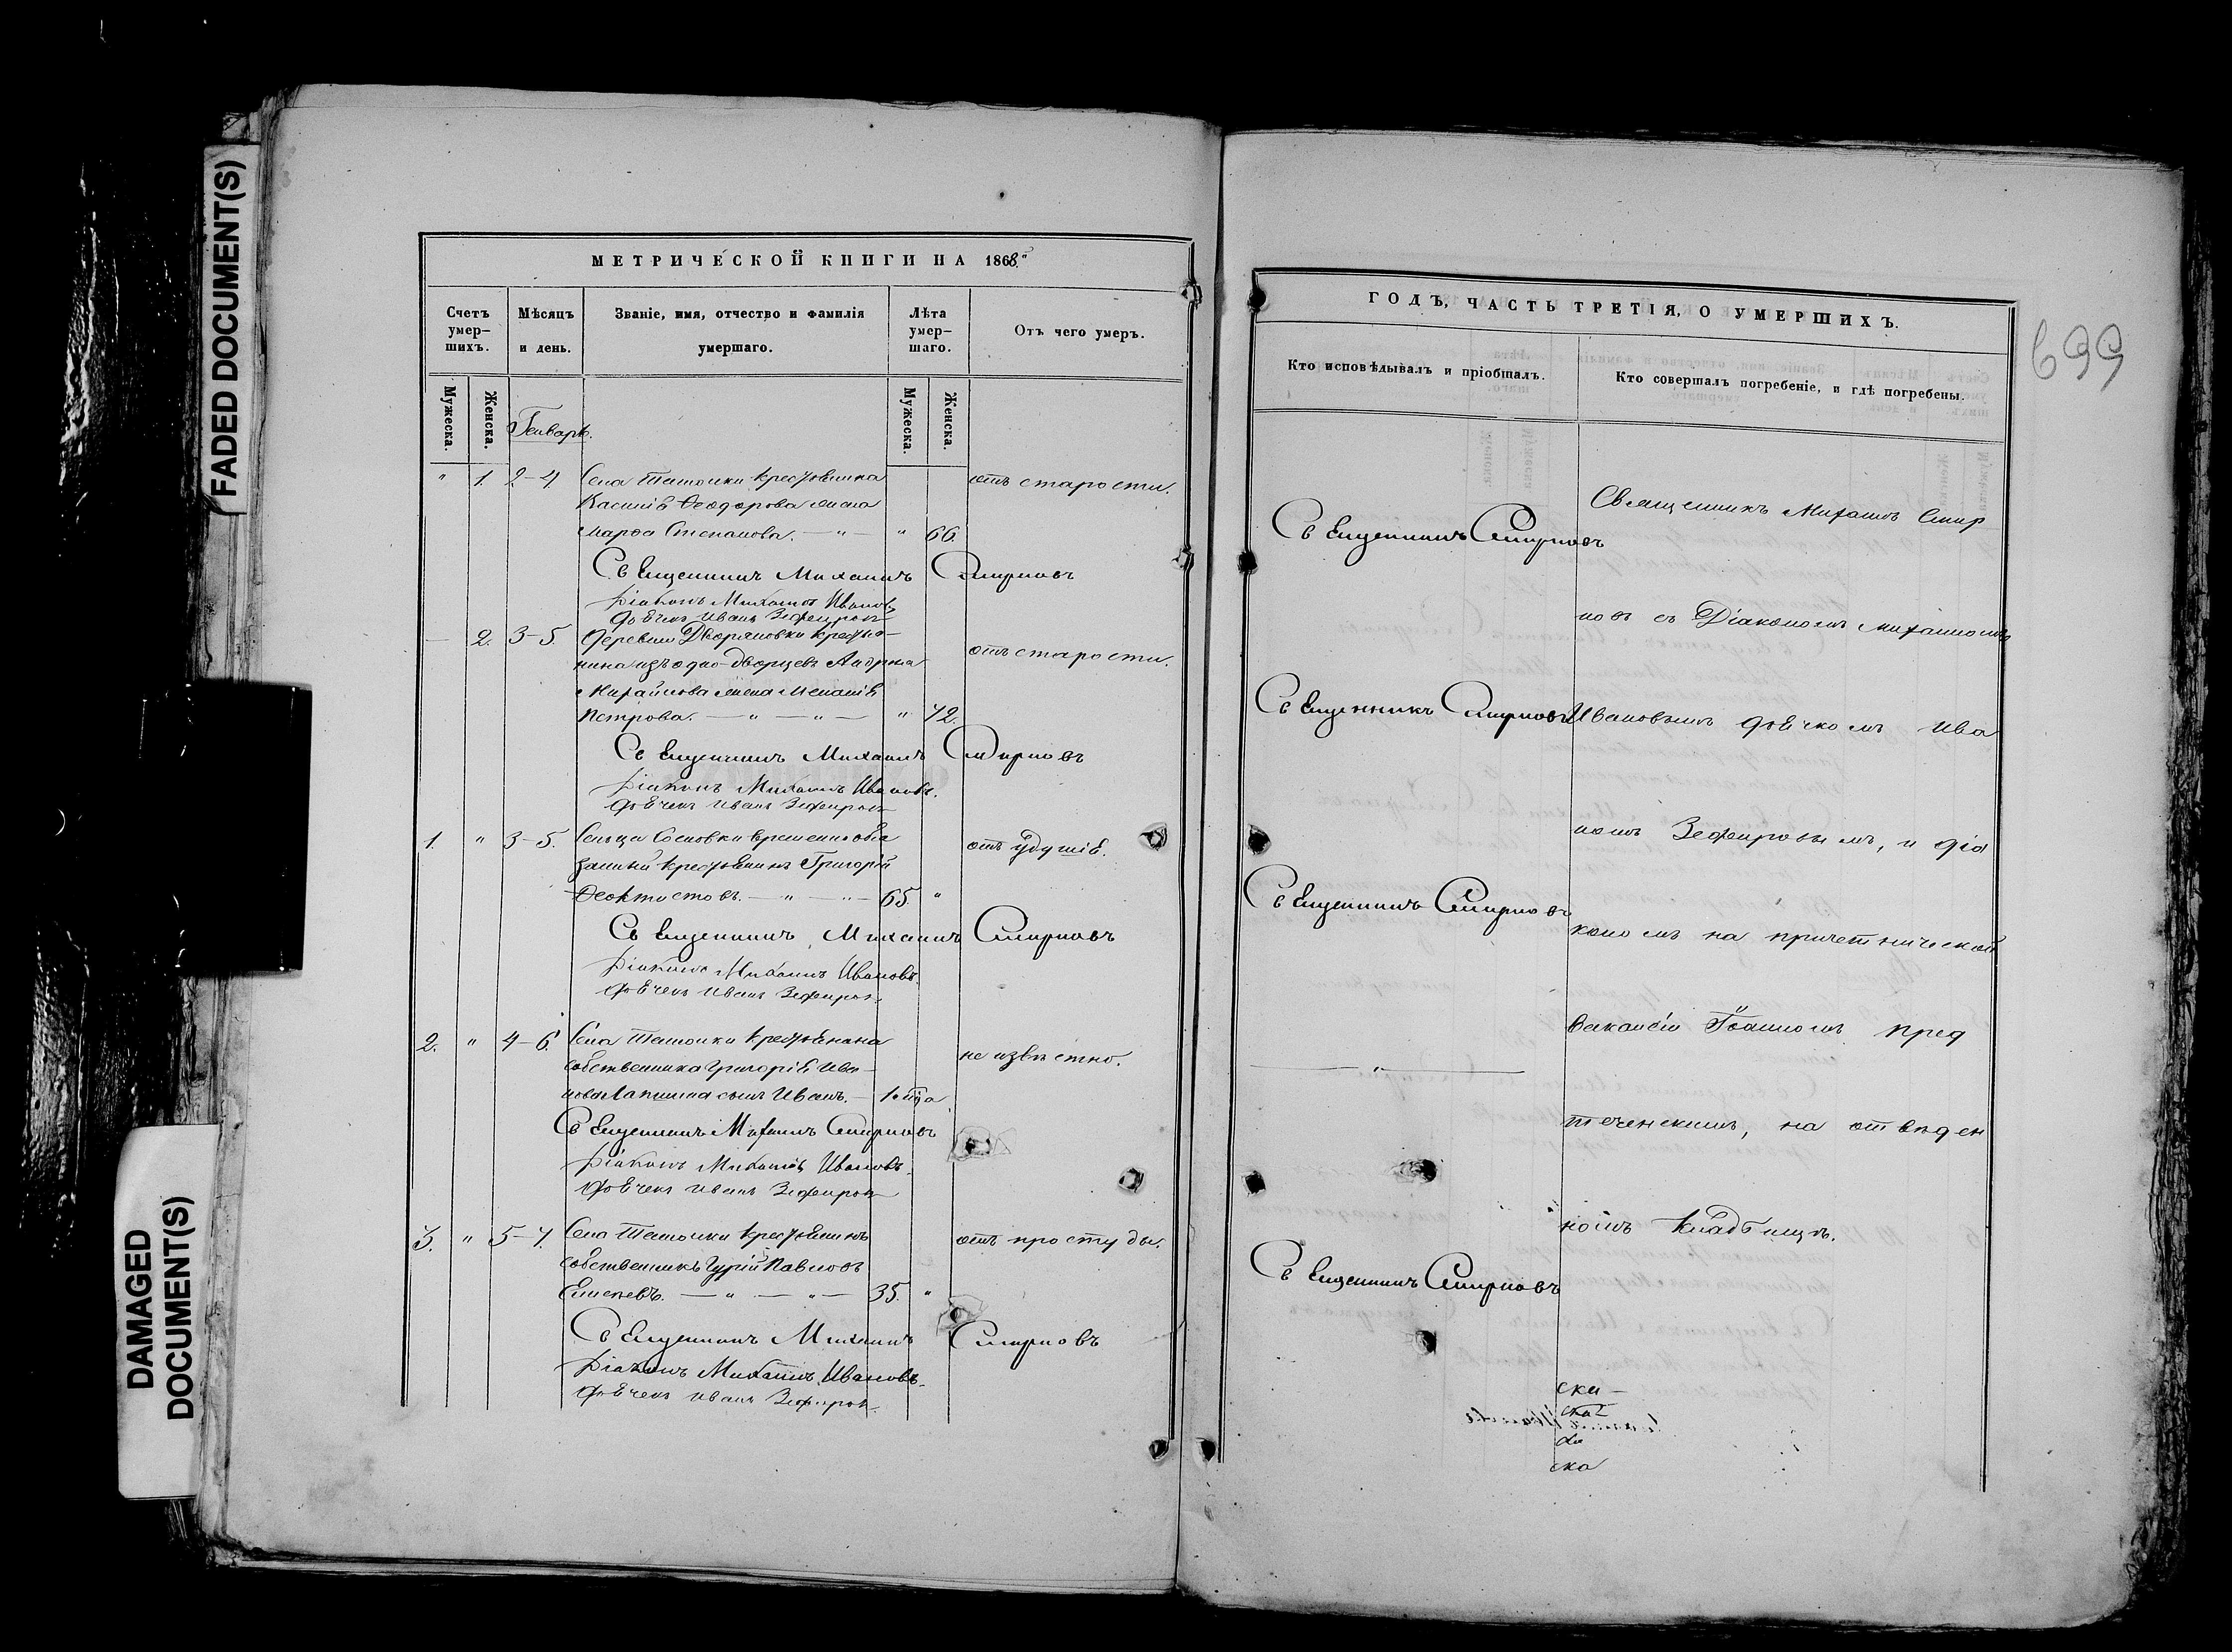 FADED DOCUMENT(S)
DAMAGED
DOCUMENT(S)
МЕТРИЧЕСКОЙ КНИГИ НА 1868."
Счетъ умер-шихъ.
Мѣсяцъ и день.
Званіе, имя, отчество и фамилія умершаго.
Лѣта умер-шаго.
Отъ чего умеръ.
Мужеска.
Женска.
Мужеска.
Женска.
Генварь.
" 1. 2-4. Села крестьянина отъ старости.
Касьяна Ѳеодорова жена
Марѳа Степанова. — " — " 66.
Священникъ Михаилъ Смирновъ
Діаконъ Михаилъ Ивановъ
Дьячекъ Иванъ Зефировъ
— 2. 3-5. Деревни Дворяновки крестья-
нина изъ одно-дворцевъ отъ старости.
Михайлова жена Меланія
Петрова. — " — " — " 72.
Священникъ Михаилъ Смирновъ
Діаконъ Михаилъ Ивановъ.
Дьячекъ Иванъ Зефировъ
1. " 3-5. Сельца Сосновки временнообя отъ удушія.
занный крестьянинъ Григорій
Ѳеоктистовъ. — " — " — 65. "
Священникъ Михаилъ Смирновъ
Діаконъ Михаилъ Ивановъ
Дьячекъ Иванъ Зефировъ
2. " 4-6. Села крестьянина
собственника Григорія Ива- не извѣстно.
нова Лапшина сынъ Иванъ. — 1. года
Священникъ Михаилъ Смирновъ
Діаконъ Михаилъ Ивановъ.
Дьячекъ Иванъ Зефировъ
3. " 5-7. Села крестьянинъ отъ простуды.
собственникъ Гурій Павловъ
— " — " — 35. "
Священникъ Михаилъ Смирновъ
Діаконъ Михаилъ Ивановъ.
Дьячекъ Иванъ Зефировъ
ГОДЪ, ЧАСТЬ ТРЕТІЯ, О УМЕРШИХЪ.
699
Кто исповѣдывалъ и пріобщалъ.
Кто совершалъ погребеніе, и гдѣ погребены.
Священникъ Смирновъ
Священникъ Смирновъ
Священникъ Смирновъ
— " —
Священникъ Смирновъ
Священникъ Михаилъ Смир
новъ съ Діакономъ Михаиломъ
Ивановымъ дьячкомъ Ива
номъ Зефировымъ, и діа
кономъ на причетнической
вакансіи Іоанномъ Пред
теченскимъ, на отведен
номъ кладбищѣ.
ски —
ска